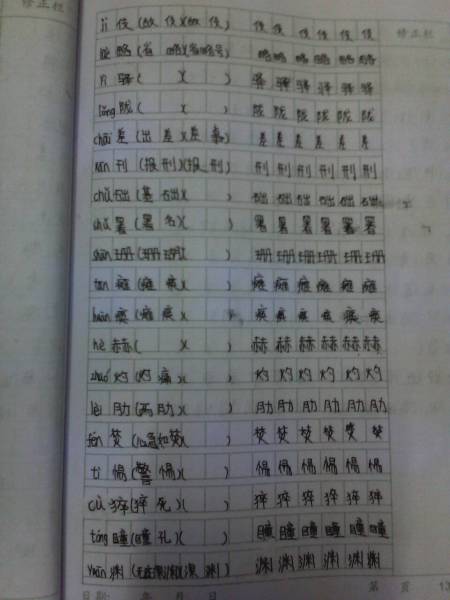 修正栏 修正栏
jì 伎 (故伎)(故伎) 伎伎伎伎伎伎
略 (省略)(省略号) 略略略略略略
yì 驿 ( )( ) 驿驿驿驿驿驿
lǒng 陇 ( )( ) 陇陇陇陇陇陇
chāi 差 (出差)(差事) 差差差差差差
kān 刊 (报刊)(报刊) 刊刊刊刊刊刊
chǔ 础 (基础)( ) 础础础础础础
shǔ 署 (署名)( ) 署署署署署署
shān 珊 (珊珊)( ) 珊珊珊珊珊珊
tān 瘫 (瘫痪)( ) 瘫瘫瘫瘫瘫瘫
huàn 痪 (瘫痪)( ) 痪痪痪痪痪痪
hè 赫 ( )( ) 赫赫赫赫赫赫
zhuó 灼 (灼痛)( ) 灼灼灼灼灼灼
lèi 肋 (两肋)( ) 肋肋肋肋肋肋
fén 焚 (心急如焚)( ) 焚焚焚焚焚焚
tì 惕 (警惕)( ) 惕惕惕惕惕惕
cù 猝 (猝死)( ) 猝猝猝猝猝猝
tóng 瞳 (瞳孔)( ) 瞳瞳瞳瞳瞳瞳
yuān 渊 (无底深渊)(深渊) 渊渊渊渊渊渊
日期: 年 月 日 第 页 13